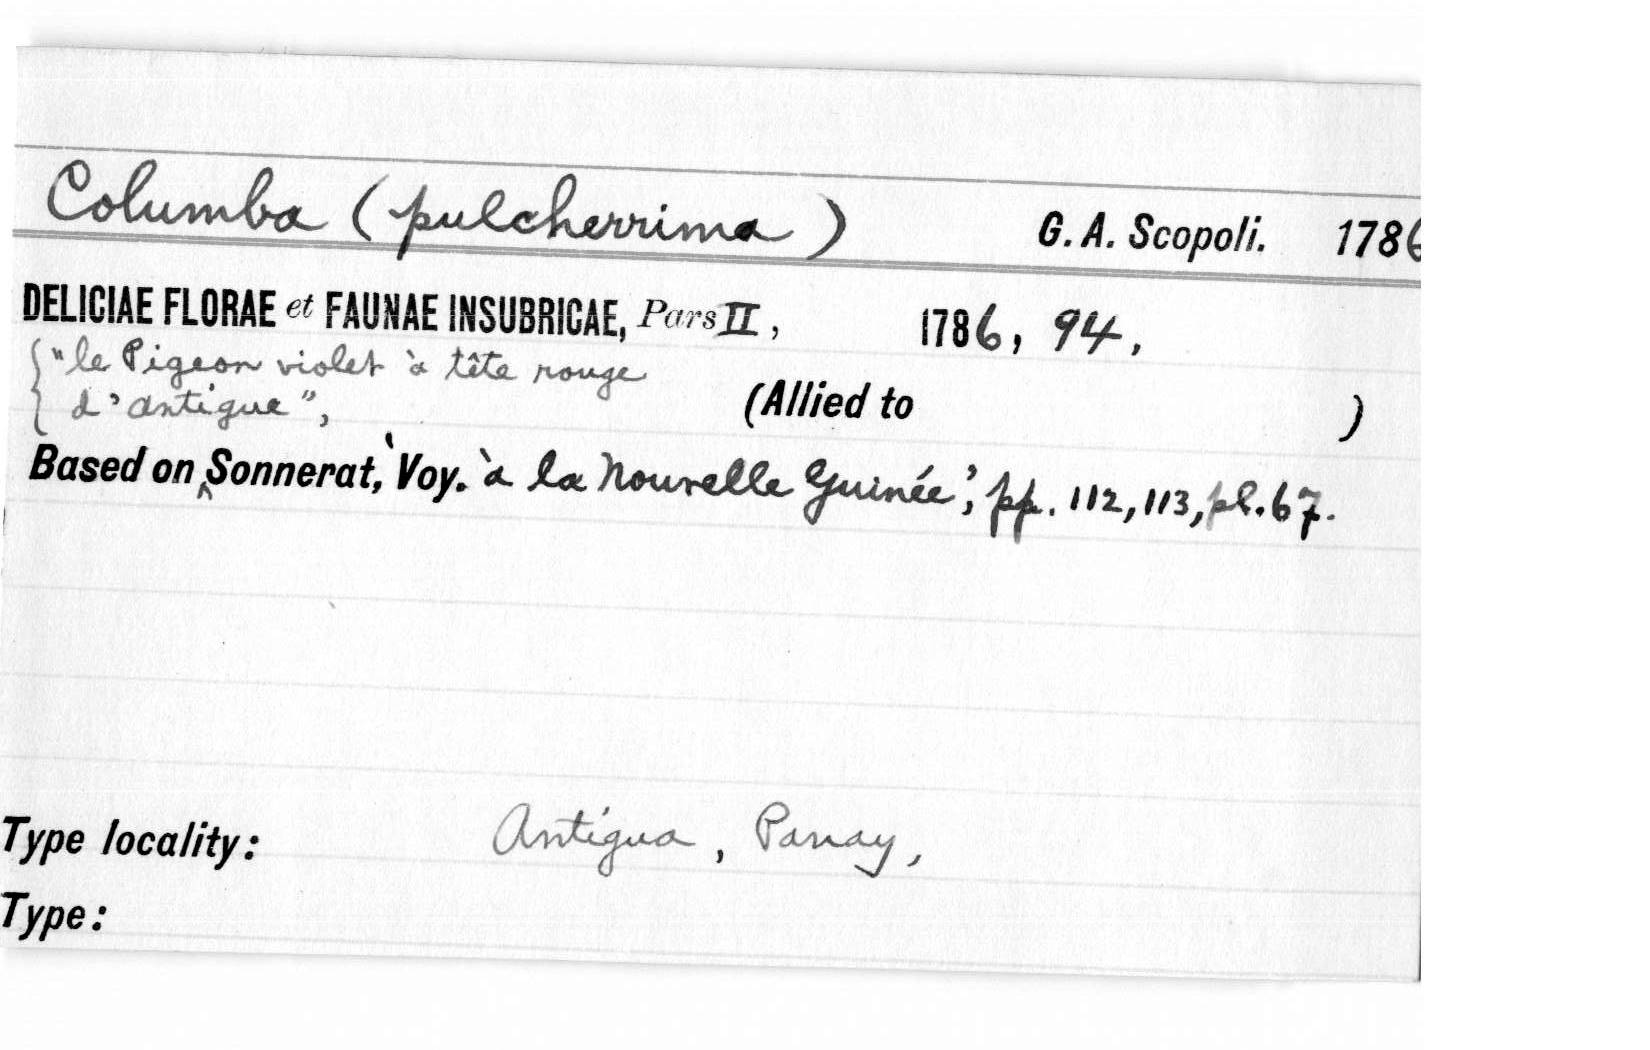 Columba (pulcherrima) G. A. Scopoli. 1786
DELICIAE FLORAE et FAUNAE INSUBRICAE, Pars II, 1786, 94,
"le Pigeon violet à tête rouge
d'antigue", (Allied to )
Based on Sonnerat, 'Voy. à la Nouvelle Guinée', pp. 112, 113, pl. 67.
Type locality: Antigua, Panay,
Type: